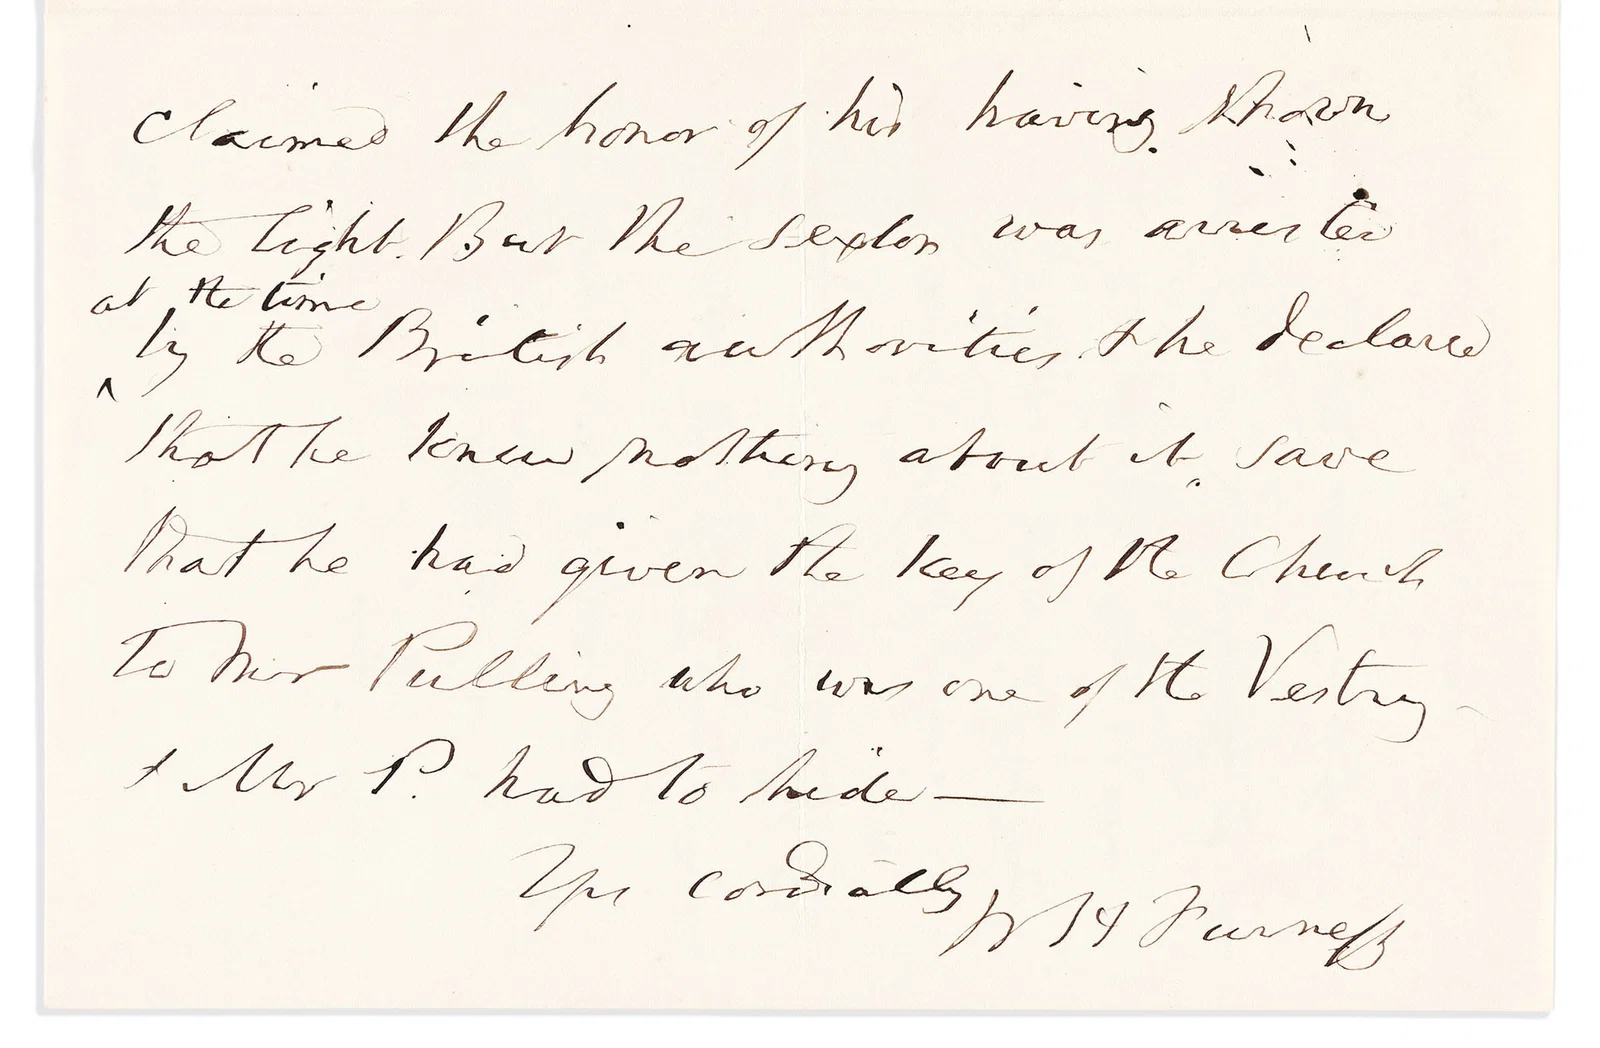 claimed the honor of his having shown
the light. But the sexton was arrested
at the time
by the British authorities & he declared
that he knew nothing about it, save
that he had given the key of the Church
to Mr Pulling who was one of the Vestry -
& Mr P. had to hide —
Yrs cordially
W H Furness